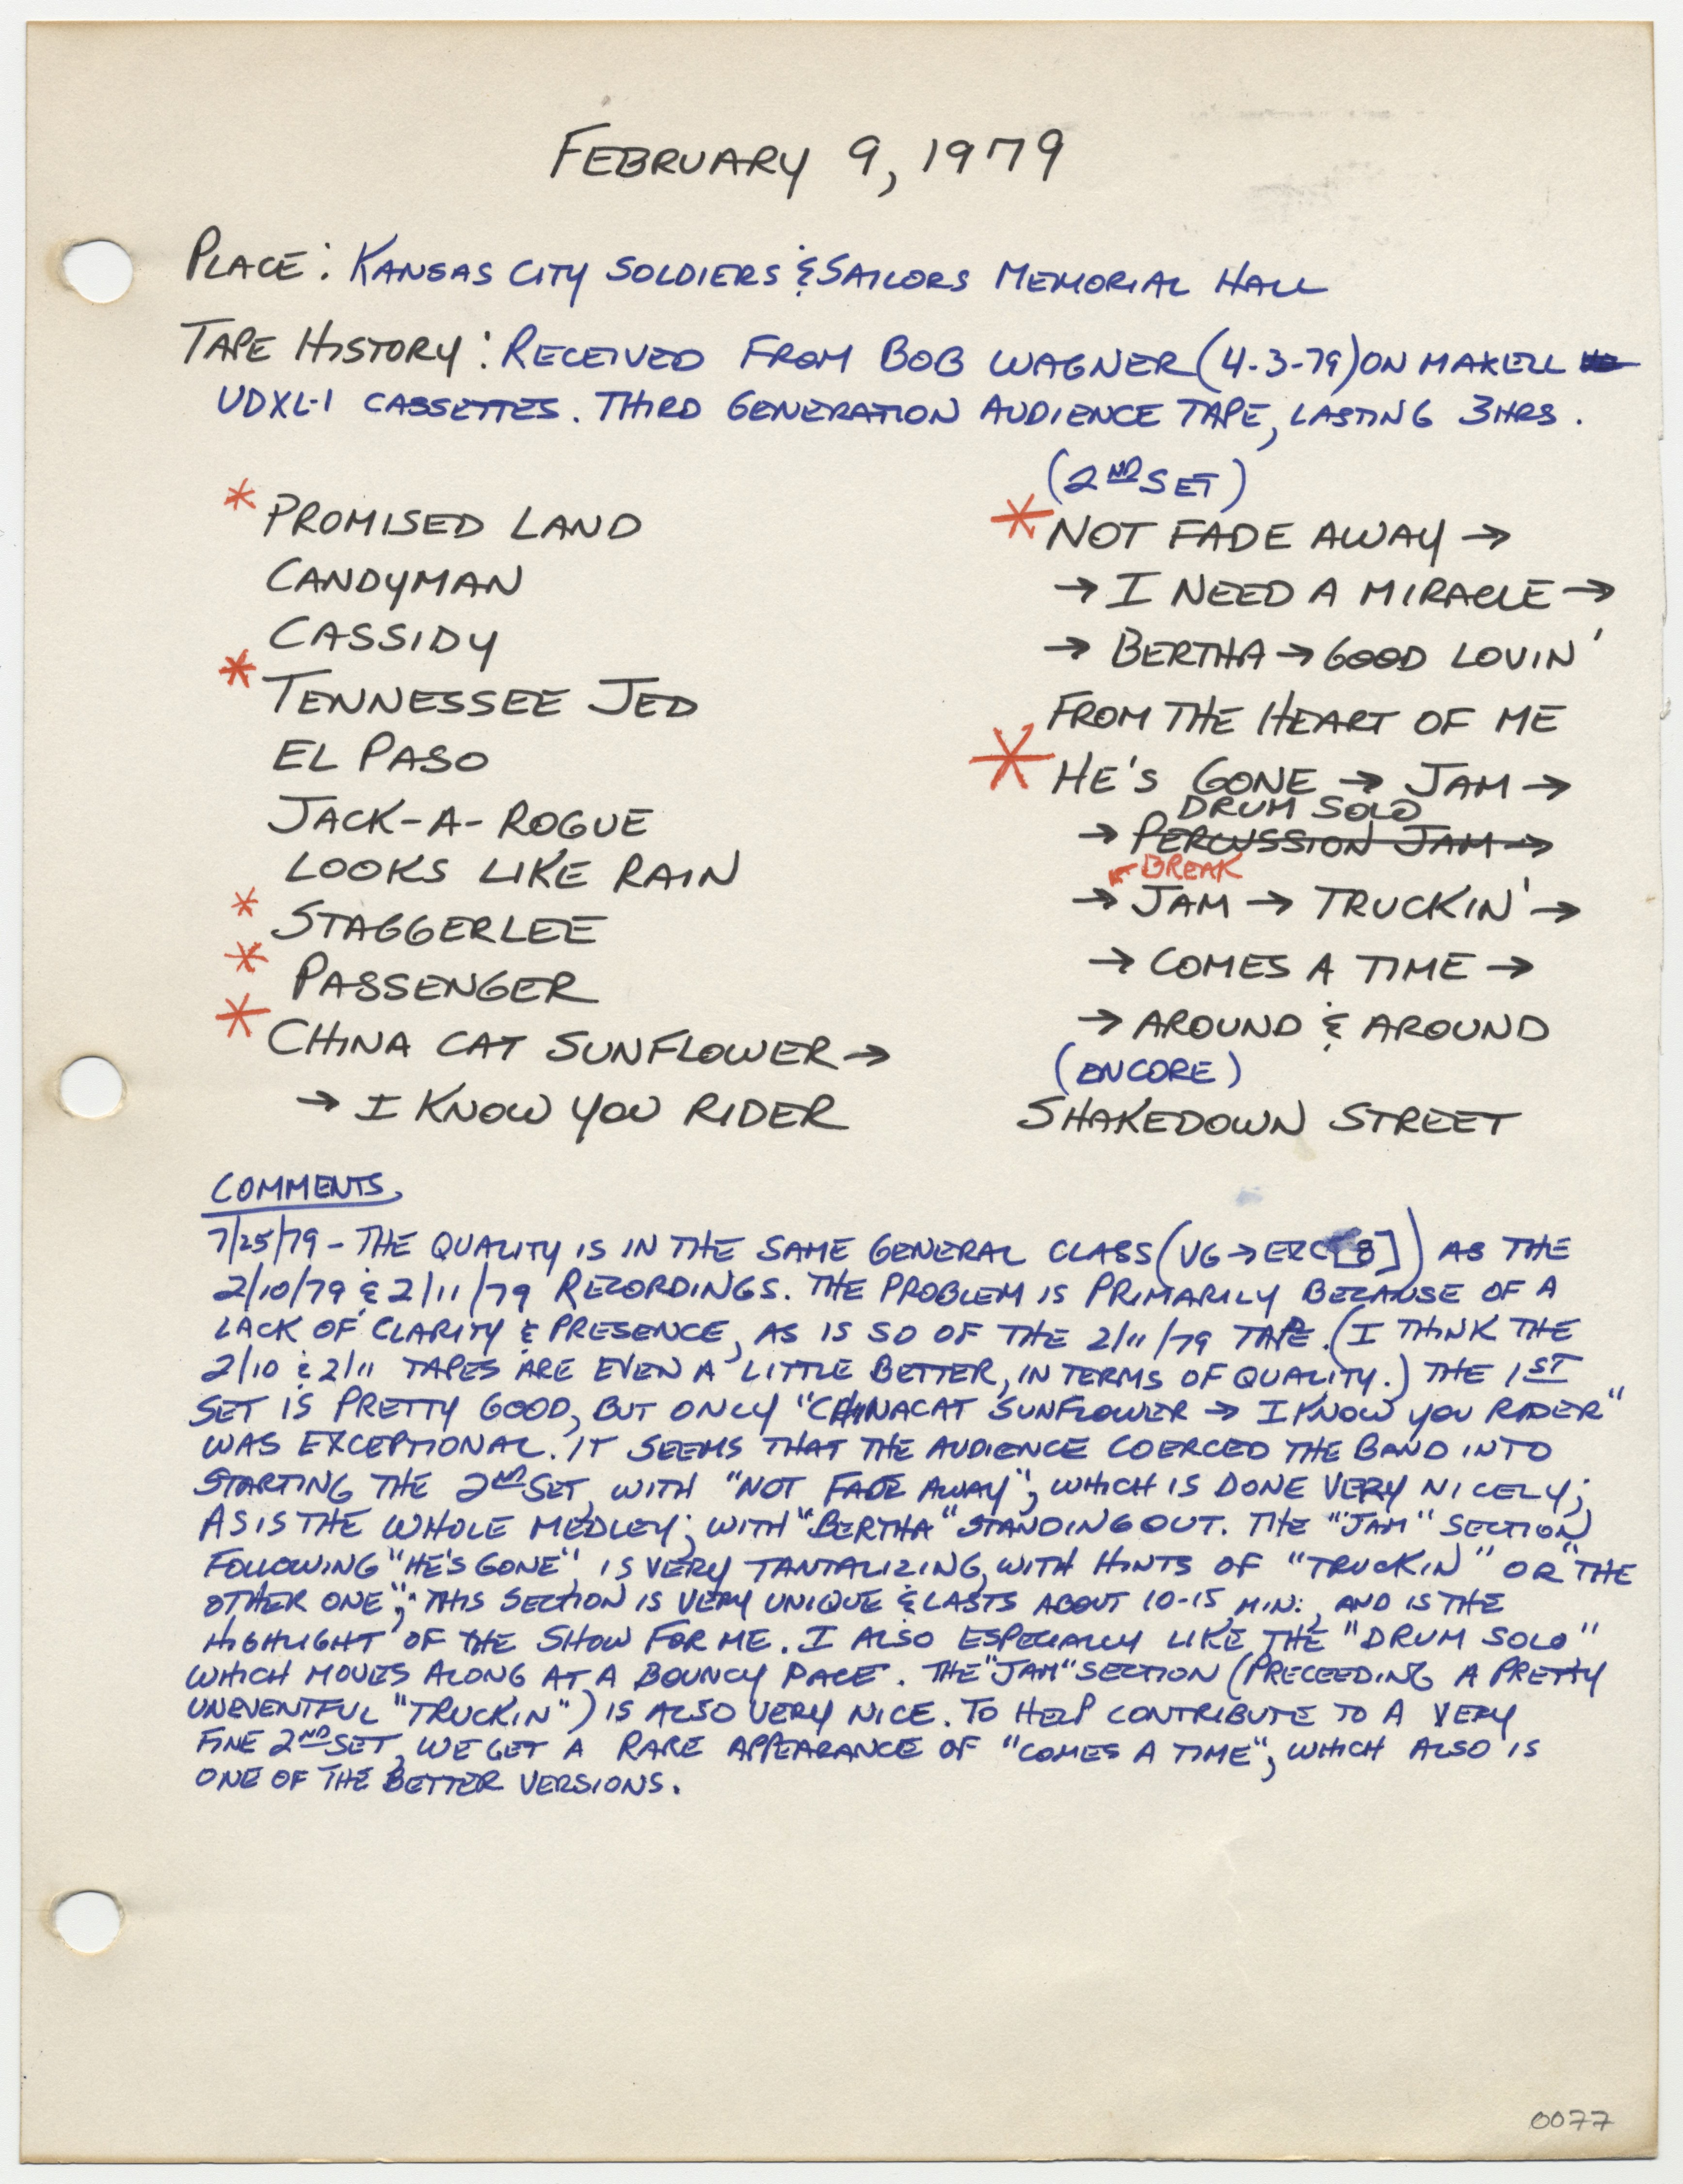 FEBRUARY 9, 1979
PLACE: KANSAS CITY SOLDIERS & SAILORS MEMORIAL HALL
TAPE HISTORY: RECEIVED FROM BOB WAGNER (4-3-79) ON MAXELL
UDXL-1 CASSETTES. THIRD GENERATION AUDIENCE TAPE, LASTING 3HRS.
* PROMISED LAND
CANDYMAN
CASSIDY
* TENNESSEE JED
EL PASO
JACK-A-ROGUE
LOOKS LIKE RAIN
* STAGGERLEE
* PASSENGER
* CHINA CAT SUNFLOWER →
→ I KNOW YOU RIDER
(2ND SET)
* NOT FADE AWAY →
→ I NEED A MIRACLE →
→ BERTHA → GOOD LOVIN'
FROM THE HEART OF ME
* HE'S GONE → JAM →
DRUM SOLO
→ PERCUSSION JAM →
← BREAK
→ JAM → TRUCKIN' →
→ COMES A TIME →
→ AROUND & AROUND
(ENCORE)
SHAKEDOWN STREET
COMMENTS
7/25/79 - THE QUALITY IS IN THE SAME GENERAL CLASS (VG → EXC [8]) AS THE
2/10/79 & 2/11/79 RECORDINGS. THE PROBLEM IS PRIMARILY BECAUSE OF A
LACK OF CLARITY & PRESENCE, AS IS SO OF THE 2/11/79 TAPE. (I THINK THE
2/10 & 2/11 TAPES ARE EVEN A LITTLE BETTER, IN TERMS OF QUALITY.) THE 1ST
SET IS PRETTY GOOD, BUT ONLY "CHINACAT SUNFLOWER → I KNOW YOU RIDER"
WAS EXCEPTIONAL. IT SEEMS THAT THE AUDIENCE COERCED THE BAND INTO
STARTING THE 2ND SET, WITH "NOT FADE AWAY", WHICH IS DONE VERY NICELY;
AS IS THE WHOLE MEDLEY; WITH "BERTHA" STANDING OUT. THE "JAM" SECTION
FOLLOWING "HE'S GONE", IS VERY TANTALIZING, WITH HINTS OF "TRUCKIN" OR "THE
OTHER ONE"; THIS SECTION IS VERY UNIQUE & LASTS ABOUT 10-15 MIN., AND IS THE
HIGHLIGHT OF THE SHOW FOR ME. I ALSO ESPECIALLY LIKE THE "DRUM SOLO"
WHICH MOVES ALONG AT A BOUNCY PACE. THE "JAM" SECTION (PRECEEDING A PRETTY
UNEVENTFUL "TRUCKIN") IS ALSO VERY NICE. TO HELP CONTRIBUTE TO A VERY
FINE 2ND SET, WE GET A RARE APPEARANCE OF "COMES A TIME", WHICH ALSO IS
ONE OF THE BETTER VERSIONS.
0077